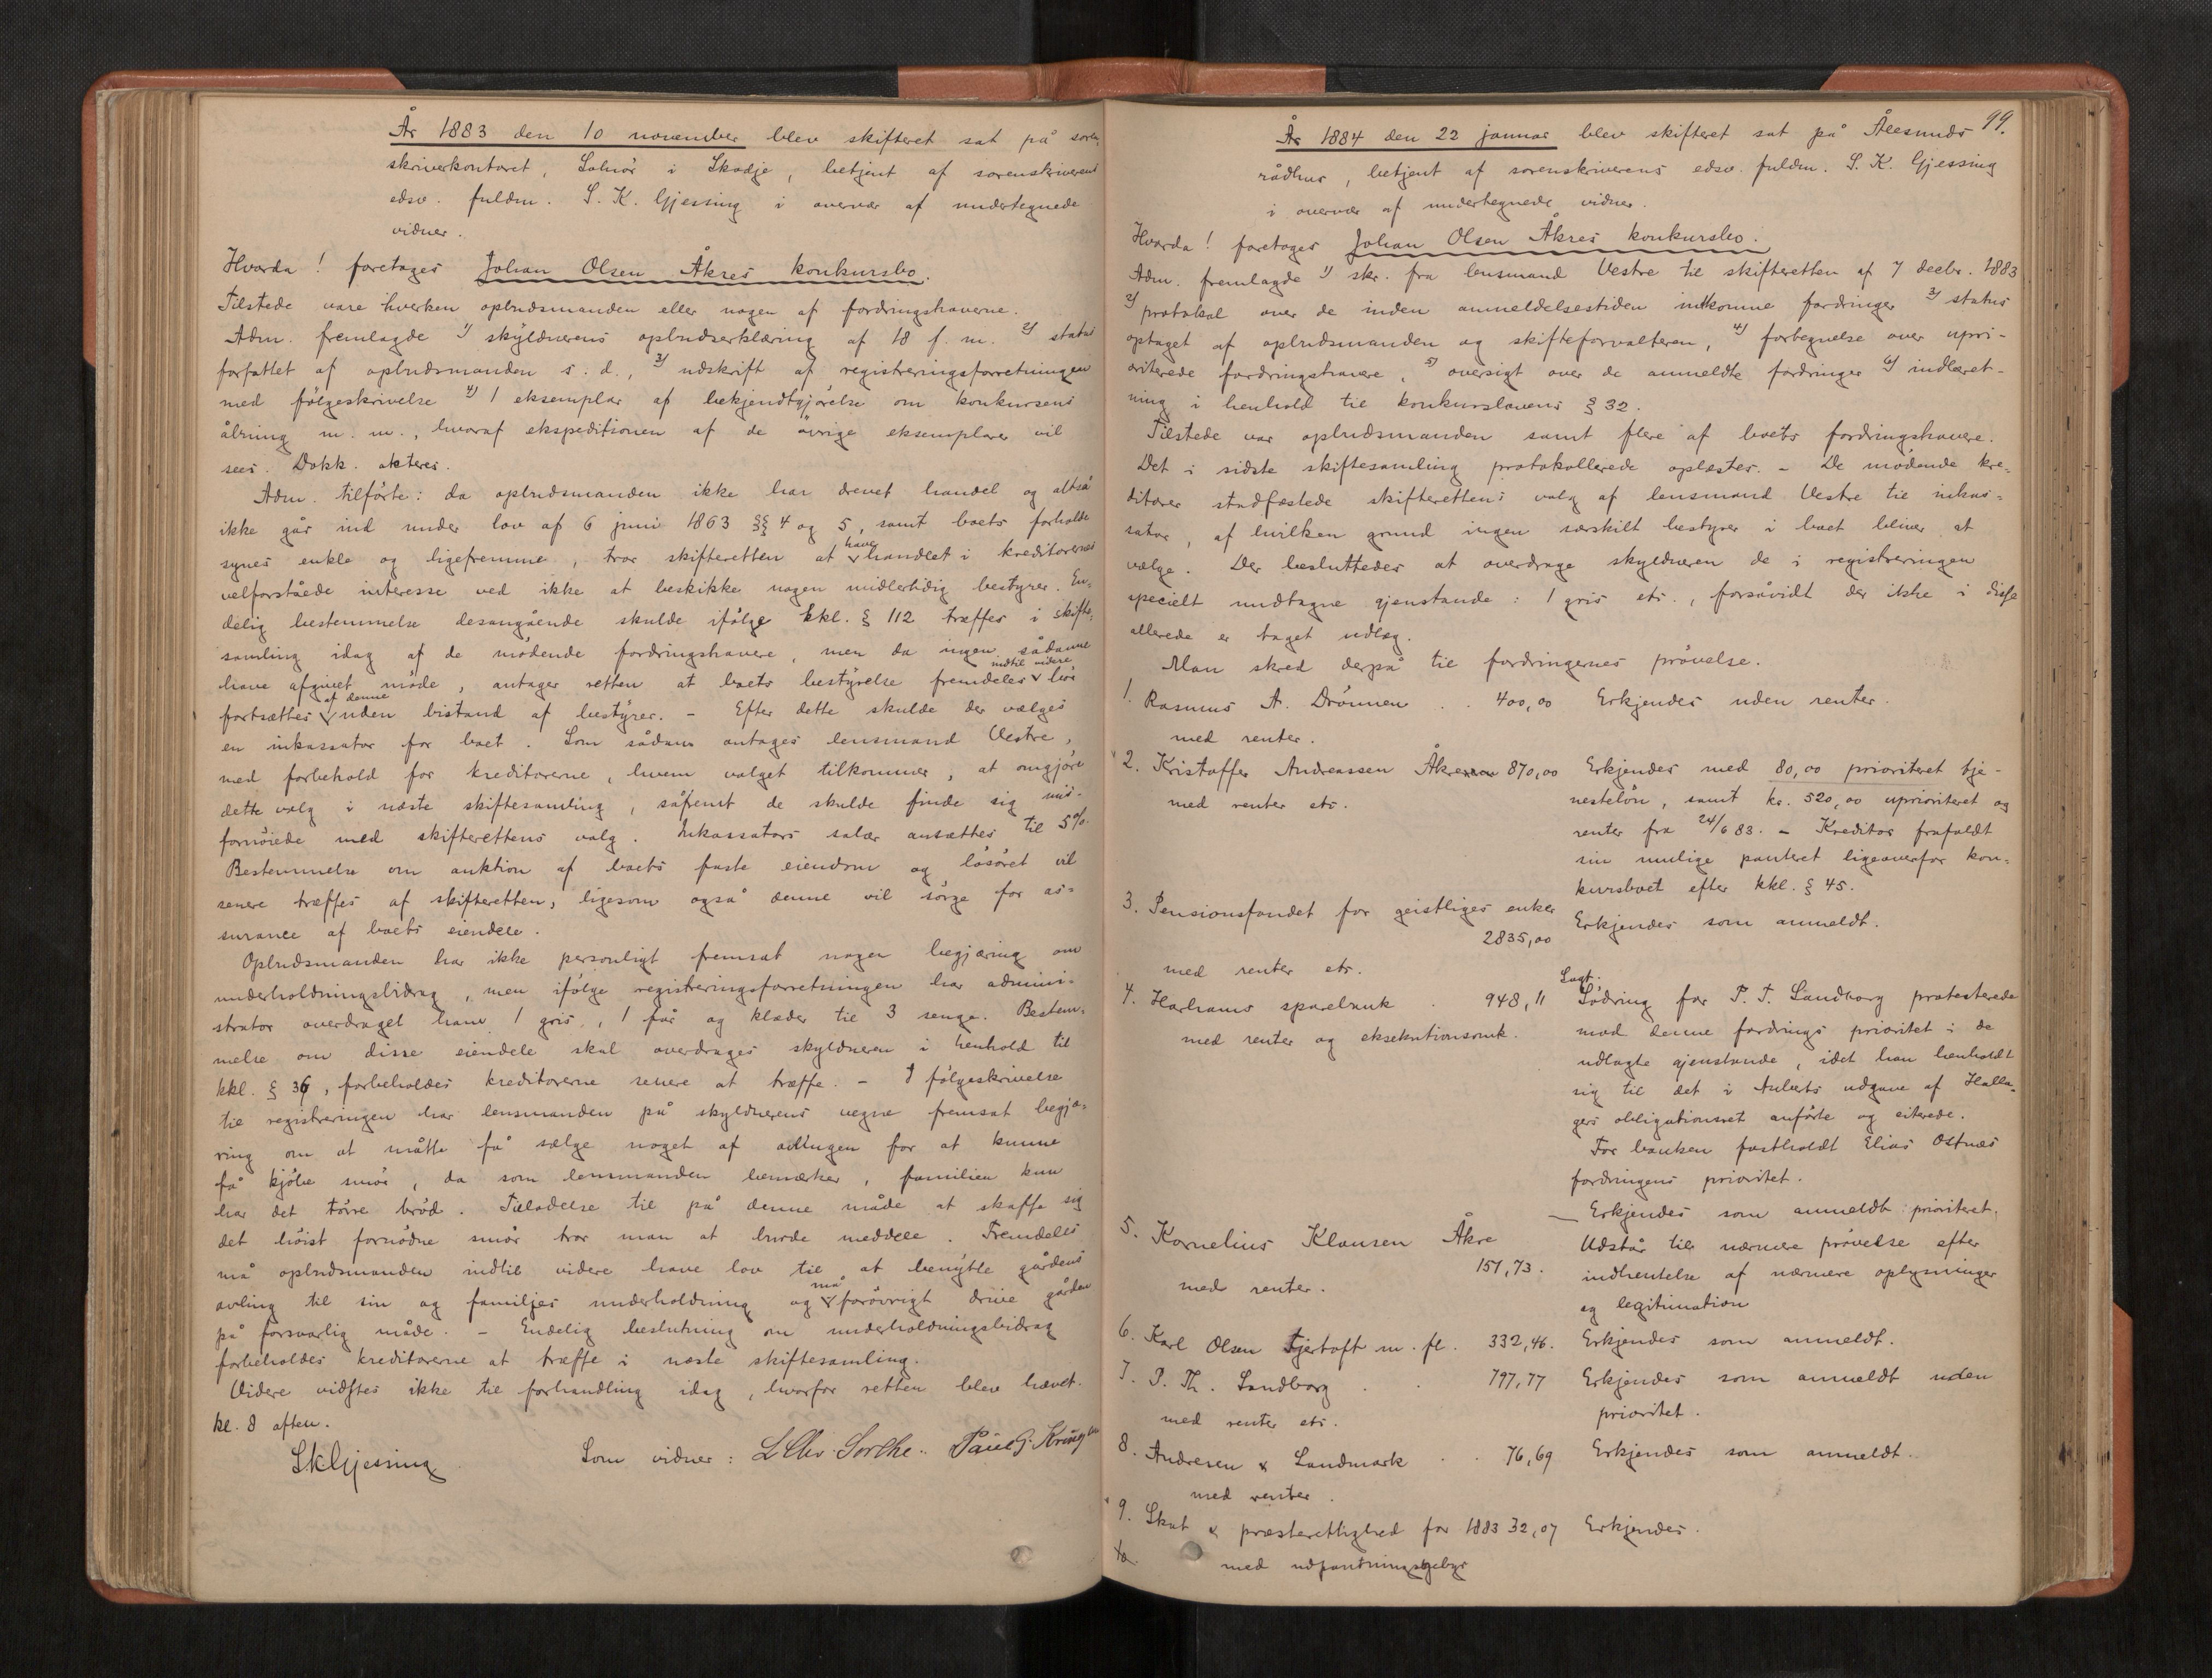 År 1883 den 10 november blev skifteret sat på soren
skriverkontoret, Solnör i Skodje, betjent af sorenskriverens
edsv. fuldm. S. K. Gjessing i overvær af undertegnede
vidner.
Hvorda! foretoges Johan Olsen Åkres konkursbo.
Tilstede vare hverken opbudsmanden eller nogen af fordringshaverne.
Adm. fremlagde 1) skyldnerens opbudserklæring af 18 f. m. 2) status
forfattet af opbudsmanden s. d., 3) udskrift af registreringsforretningen
med følgeskrivelse 4) 1 eksemplar af bekjendtgjørelse om konkursens
åbning m. m., hvoraf ekspeditionen af de øvrige eksemplarer vil
sees. Dokk. akteres.
Adm. tilførte: da opbudsmanden ikke har drevet handel og altså
ikke går ind under lov af 6 juni 1863 §§ 4 og 5, samt boets forholde
synes enkle og ligefremme, tror skifteretten at have handlet i kreditorernes
velforståede interesse ved ikke at beskikke nogen midlertidig bestyrer. En-
delig bestemmelse desangående skulde ifølge kkl. § 112 træffes i skifte-
samling idag af de mødende fordringshavere, men da ingen sådanne
have afgivet møde, antager retten at boets bestyrelse fremdeles indtil videre bør
fortsættes af denne uden bistand af bestyrer. – Efter dette skulde der vælges
en inkassator for boet. Som sådan antages lensmand Vestre,
med forbehold for kreditorerne, hvem valget tilkommer, at omgjøre
dette valg i næste skiftesamling, såfremt de skulde finde sig mis-
fornøiede med skifterettens valg. Inkassators salær ansættes til 5%.
Bestemmelse om auktion af boets faste eiendom og løsøret vil
senere træffes af skifteretten, ligesom også denne vil sørge for as-
surance af boets eiendele.
Opbudsmanden har ikke personligt fremsat nogen begjæring om
underholdningsbidrag, men ifølge registreringsforretningen har admini-
strator overdraget ham 1 gris, 1 får og klæder til 3 senge. Bestem-
melse om disse eiendele skal overdrages skyldneren i henhold til
kkl. § 36, forbeholdes kreditorerne senere at træffe. – I følgeskrivelse
til registreringen har lensmanden på skyldnerens vegne fremsat begjæ-
ring om at måtte få sælge noget af avlingen for at kunne
få kjøbe smør, da som lensmanden bemærker, familien kun
har det tørre brød. Tilladelse til på denne måde at skaffe sig
det høist fornødne smør tror man at burde meddele. Fremdeles
må opbudsmanden indtil videre have lov til at benytte gårdens
avling til sin og familjes underholdning og må forøvrigt drive gården
på forsvarlig måde. – Endelig beslutning om underholdningsbidrag
forbeholdes kreditorerne at træffe i næste skiftesamling.
Videre vidstes ikke til forhandling idag, hvorfor retten blev hævet.
kl. 8 aften.
SKGjessing Som vidner: L Chr. Sorthe. Paul G.
99.
År 1884 den 22 januar blev skifteret sat på Ålesunds
rådhus, betjent af sorenskriverens edsv. fuldm. S. K. Gjessing
i overvær af undertegnede vidner.
Hvorda! foretoges Johan Olsen Åkres konkursbo.
Adm. fremlagde 1) skr. fra lensmand Vestre til skifteretten af 7 decbr. 1883
2) protokol over de inden anmeldelsestiden indkomne fordringer 3) status
optaget af opbudsmanden og skifteforvalteren, 4) fortegnelse over upri-
oriterede fordringshavere, 5) oversigt over de anmeldte fordringer 6) indberet-
ning i henhold til konkurslovens § 32.
Tilstede var opbudsmanden samt flere af boets fordringshavere.
Det i sidste skiftesamling protokollerede oplæstes. – De mødende kre-
ditorer stadfæstede skifterettens valg af lensmand Vestre til inkas-
sator, af hvilken grund ingen særskilt bestyrer i boet bliver at
vælge. Der besluttedes at overdrage skyldneren de i registreringen
specielt undtagne gjenstande: 1 gris etc., forsåvidt der ikke i disse
allerede er taget udlæg.
Man skred derpå til fordringernes prøvelse.
1. Rasmus A. Drønnen . . 400,00 Erkjendes uden renter.
med renter.
2. Kristoffer Andreassen Åkre 870,00 Erkjendes med 80,00 prioriteret tje-
med renter etc. nesteløn, samt kr. 520,00 uprioriteret og
renter fra 24/6 83. – Kreditor frafaldt
sin mulige panteret ligeoverfor kon-
kursboet efter kkl. § 45.
3. Pensionsfondet for geistliges enker Erkjendes som anmeldt.
2835,00
med renter etc.
4. Harhams sparebank . 948,11 Sagf. Lødring for P. T. Sandborg protesterede
med renter og eksekutionsomk. mod denne fordrings prioritet i de
udlagte gjenstande, idet han henholdt
sig til det i Auberts udgave af Halla-
gers obligationsret anførte og citerede.
For banken fastholdt Elias Ostnæs
fordringens prioritet.
— Erkjendes som anmeldt: prioriteret.
5. Kornelius Klausen Åkre Udstår til nærmere prøvelse efter
151,73. indhentelse af nærmere oplysninger
med renter. og legitimation
6. Karl Olsen Fjertoft m. fl. 332,46. Erkjendes som anmeldt.
7. P. Th. Sandborg . . 797,77 Erkjendes som anmeldt uden
med renter etc. prioritet.
8. Andresen & Landmark . . 76,69 Erkjendes som anmeldt.
med renter.
9. Skat & præsterettighed for 1883 32,07 Erkjendes.
med udpantningsgebyr